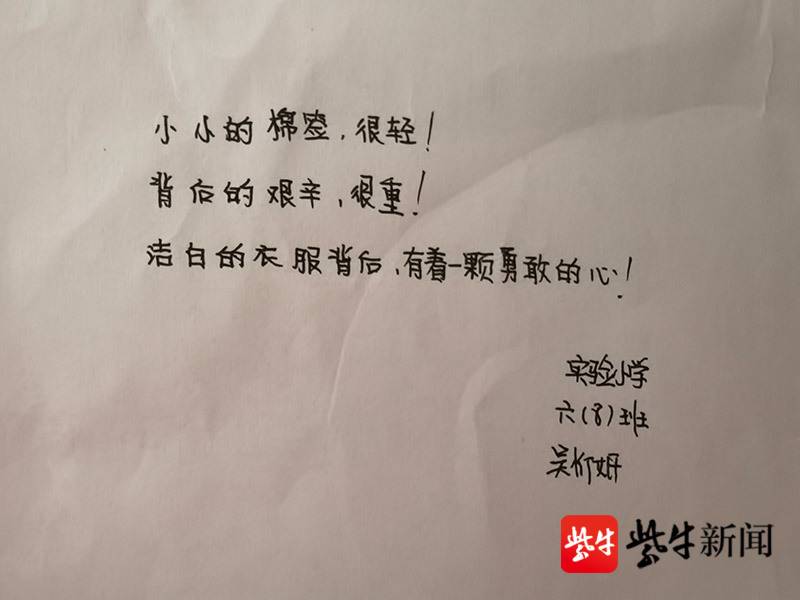 小小的棉签，很轻！
背后的艰辛，很重！
洁白的衣服背后，有着一颗勇敢的心！
实验小学
六（8）班
紫牛 紫牛新闻